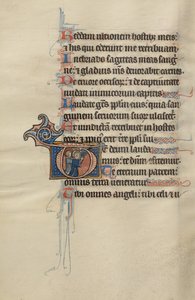 Reddam ultionem hostibz meis
et his qui oderunt me retribuam
Inebriabo sagittas meas sangui
ne: et gladius meus devorabit carnes
De cruore occisor: et de captivitate
nudati inimicorum capitis
Laudate gentes pplm eius: quia san
guinem servorum suor ulciscet
Et vindictam retribuet in hostes
eorum: et ppitius erit tre ppli sui
Te deum lauda
mus: te dnm confitemur
Te eternum patrem
omnis terra veneratur
Tibi omnes angeli: tibi celi et